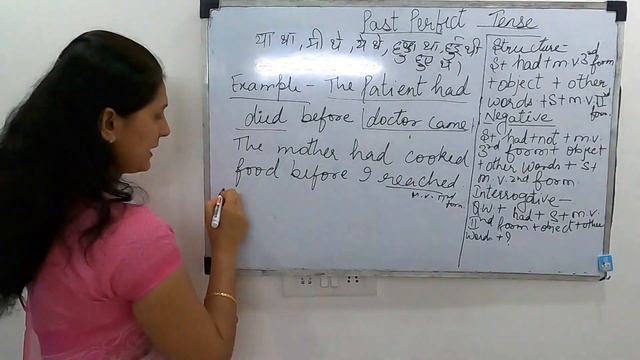 Past Perfect Tense
या था, यी थे, ये थे, हुआ था, हुई थी
हुए थे,
Example - The Patient had
died before doctor came
The mother had cooked
food before I reached
m.v. IInd
form.
Structure-
S+ had + m v 3rd form
+ object + other
words + S + m.v. II
form.
Negative
S+ had + not + m.v.
3rd form + object
+ other words + S +
m.v. 2nd form.
Interrogative-
QW + had + S + m.v.
form + object + other
word + ?